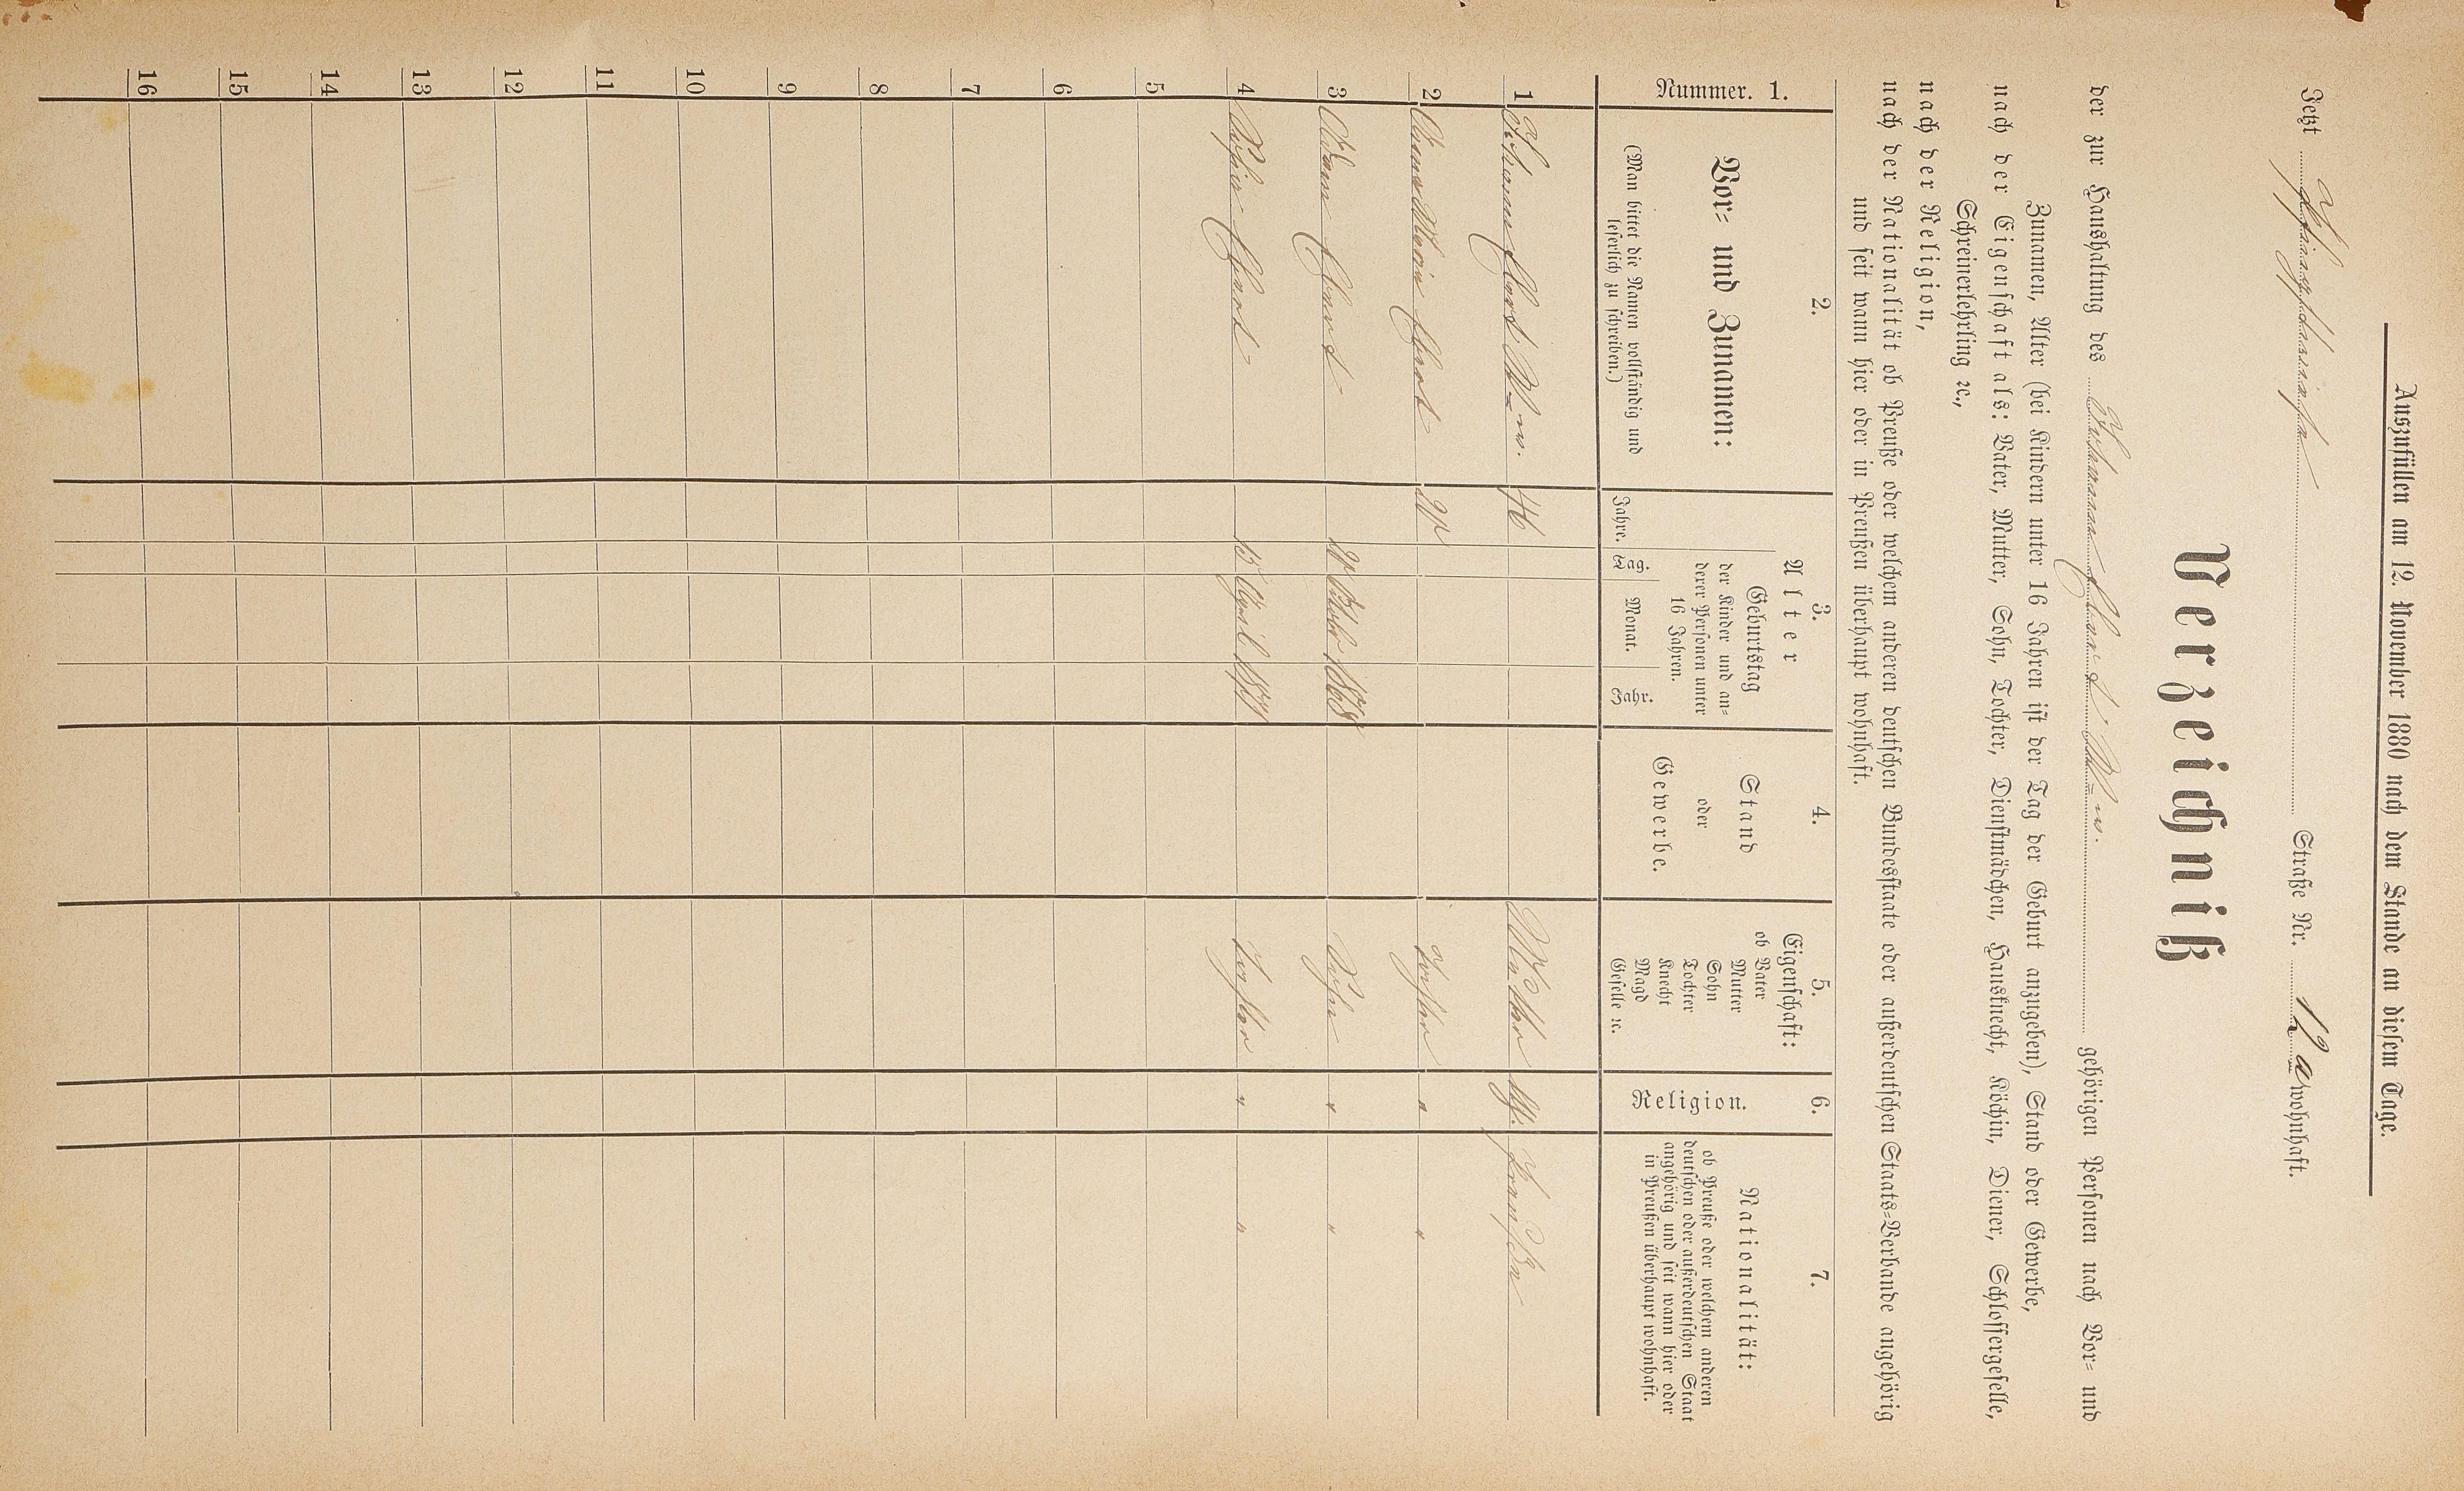 Auszufüllen am 12. November 1880 nach dem Stande an diesem Tage.
Jetzt Straße Nr. 12 a wohnhaft.
Verzeichniß
der zur Haushaltung des Johann Ebert Ww. gehörigen Personen nach Vor- und
Zunamen, Alter (bei Kindern unter 16 Jahren ist der Tag der Geburt anzugeben), Stand oder Gewerbe,
nach der Eigenschaft als: Vater, Mutter, Sohn, Tochter, Dienstmädchen, Hausknecht, Köchin, Diener, Schlossergeselle,
Schreinerlehrling ꝛc.,
nach der Religion,
nach der Nationalität ob Preuße oder welchem anderen deutschen Bundesstaate oder außerdeutschen Staats-Verbande angehörig
und seit wann hier oder in Preußen überhaupt wohnhaft.
Nummer. 1.
2.
Vor- und Zunamen:
(Man bittet die Namen vollständig und
leserlich zu schreiben.)
3.
Alter
Jahre.
Geburtstag
der Kinder und an-
derer Personen unter
16 Jahren.
Tag. Monat. Jahr.
4.
Stand
oder
Gewerbe.
5.
Eigenschaft:
ob Vater
Mutter
Sohn
Tochter
Knecht
Magd
Geselle ꝛc.
6.
Religion.
7.
Nationalität:
ob Preuße oder welchem anderen
deutschen oder außerdeutschen Staat
angehörig und seit wann hier oder
in Preußen überhaupt wohnhaft.
1 Johann Ebert Ww. 46 Mutter Preuße
2 Anna Maria Ebert Tochter " "
3 Adam Ebert Oktober 1868 Sohn " "
4 Sofie Ebert 15 April 1871 Tochter " "
5
6
7
8
9
10
11
12
13
14
15
16